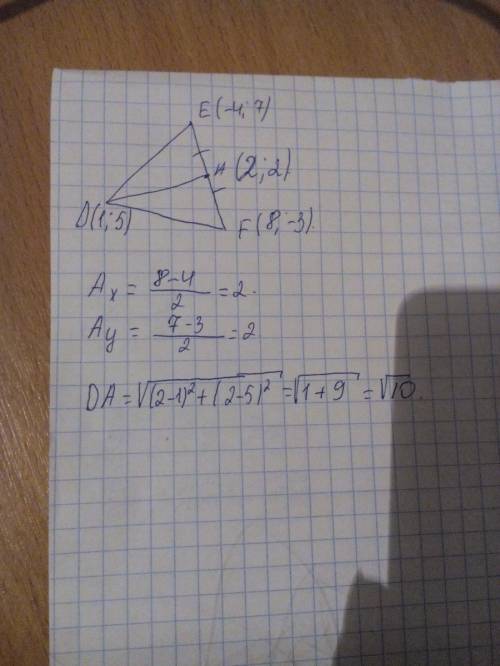 E(-4;7)
A(2;2)
D(1;5)
F(8;-3).
Ax = (8-4)/2 = 2.
Ay = (7-3)/2 = 2
DA = √((2-1)²+(2-5)²) = √(1+9) = √10.